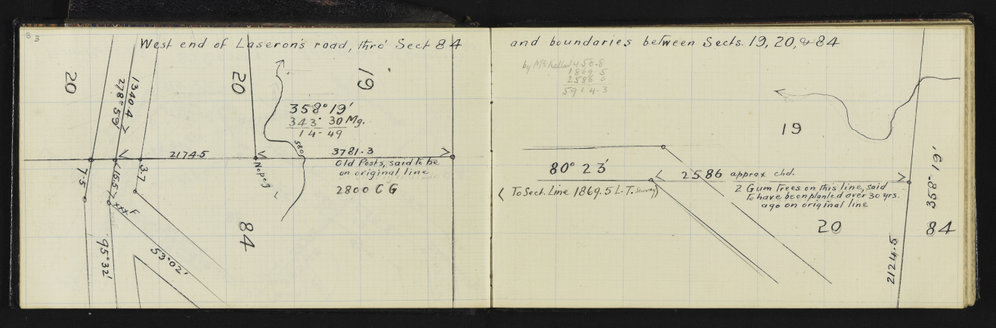 83
West end of Laseron's road, thro' Sect 84
20
278° 59'
1340.4
20
19
358° 19'
343° 30 Mg.
14-49
580
2174.5
3781.3
Old Posts, said to be
on original line
2800 C G
No peg
7.5
155.7
3.7
84
95° 32'
53° 02'
and boundaries between Sects. 19, 20, & 84
1869.5
5914.3
19
80° 23'
2586 approx chd.
( To Sect. Line 1869.5 L.T. Survey)
2 Gum Trees on this line, said
to have been planted over 30 yrs.
ago on original line
20
358° 19'
84
2124.5